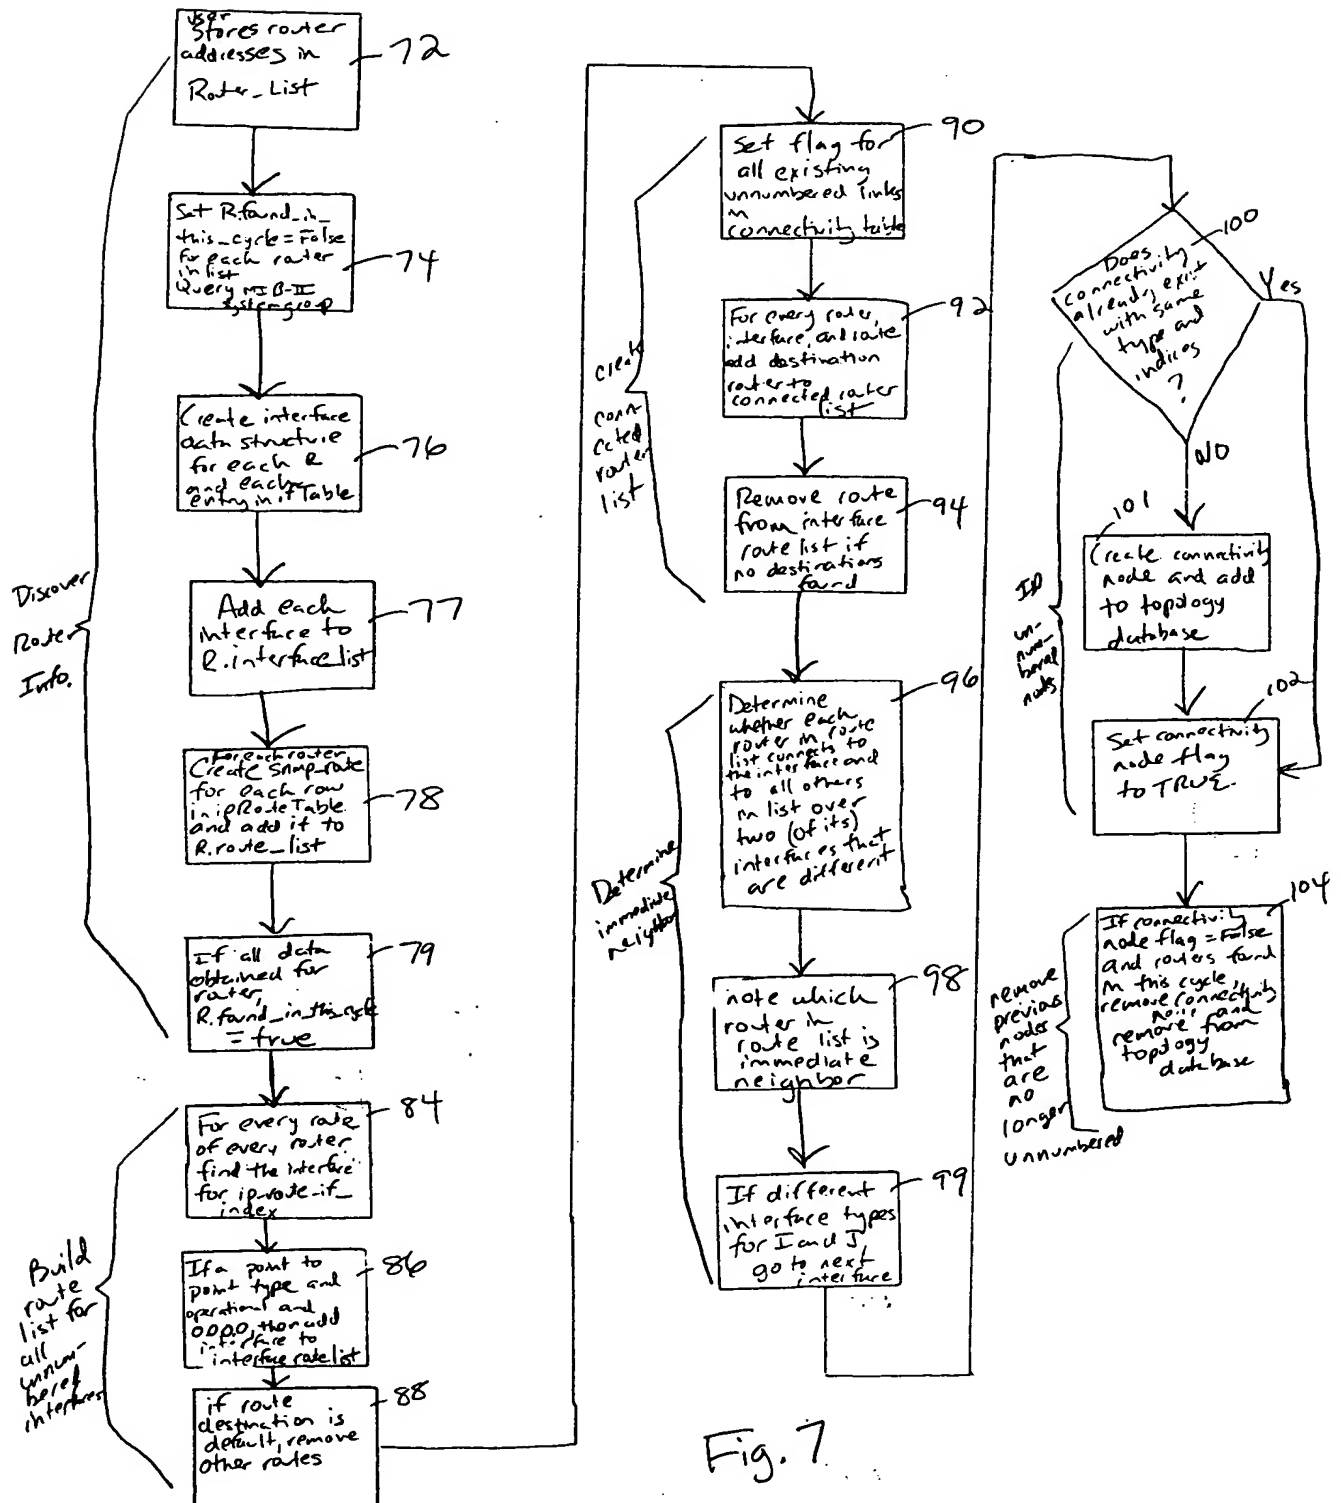 user
Stores router
addresses in
Router_List
72
Set R.found_in_
this_cycle = False
for each router
in list
Query MIB-II
system group
74
Create interface
data structure
for each R
and each
entry in ifTable
76
Add each
interface to
R.interface list
77
For each router
Create snmp_route
for each row
in ipRouteTable
and add it to
R.route_list
78
If all data
obtained for
router,
R.found_in_this_cycle
= true
79
Discover
Router
Info.
For every route
of every router
find the interface
for ip_route_if_
index
84
If a point to
point type and
operational and
0.0.0.0, then add
interface to
interface route list
86
if route
destination is
default, remove
other routes
88
Build
route
list for
all
unnum-
bered
interfaces
Set flag for
all existing
unnumbered links
in
connectivity table
90
For every router,
interface, and route
add destination
router to
connected router
list
92
Remove route
from interface
route list if
no destinations
found
94
create
conn-
ected
router
list
Determine
whether each
router in route
list connects to
the interface and
to all others
in list over
two (of its)
interfaces that
are different
96
note which
router in
route list is
immediate
neighbor
98
If different
interface types
for I and J,
go to next
interface
99
Determine
immediate
neighbor
Does
connectivity
already exist
with same
type and
indices
?
100
Yes
NO
101
Create connectivity
node and add
to topology
database
102
Set connectivity
node flag
to TRUE.
ID
un-
num-
bered
nodes
104
If connectivity
node flag = False
and routers found
in this cycle,
remove connectivity
node and
remove from
topology
database
remove
previous
nodes
that
are
no
longer
unnumbered
Fig. 7